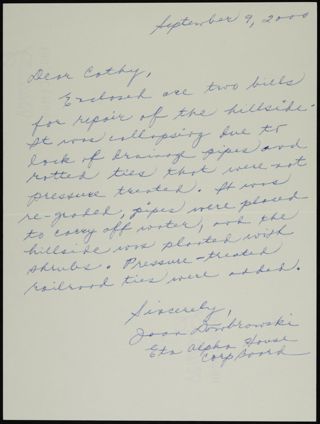 September 9, 2000
Dear Cathy,
Enclosed are two bills
for repair of the hillside.
It was collapsing due to
lack of drainage pipes and
rotted ties that were not
pressure treated. It was
re-graded, pipes were placed
to carry off water, and the
hillside was planted with
shrubs. Pressure-treated
railroad ties were added.
Sincerely,
Joan Dombrowski
Eta Alpha House
Corp Board